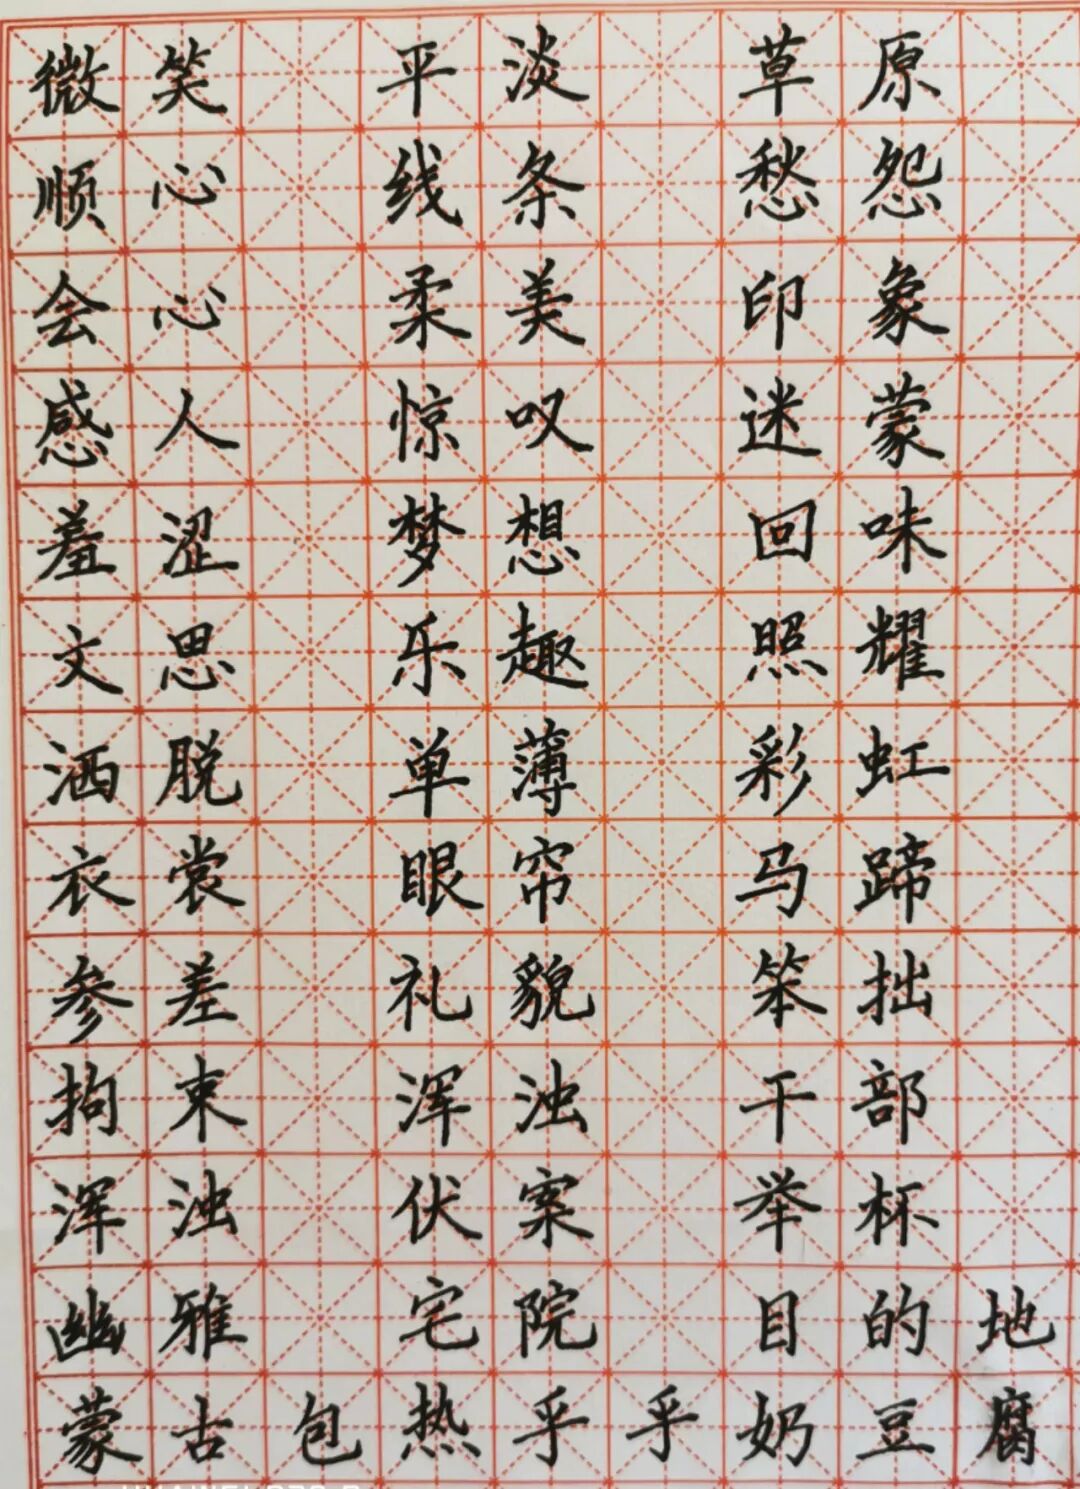 微笑 平淡 草原
顺心 线条 愁怨
会心 柔美 印象
感人 惊叹 迷蒙
羞涩 梦想 回味
文思 乐趣 照耀
洒脱 单薄 彩虹
衣裳 眼帘 马蹄
参差 礼貌 笨拙
拘束 浑浊 干部
浑浊 伏案 举杯
幽雅 宅院 目的地
蒙古包热乎乎奶豆腐